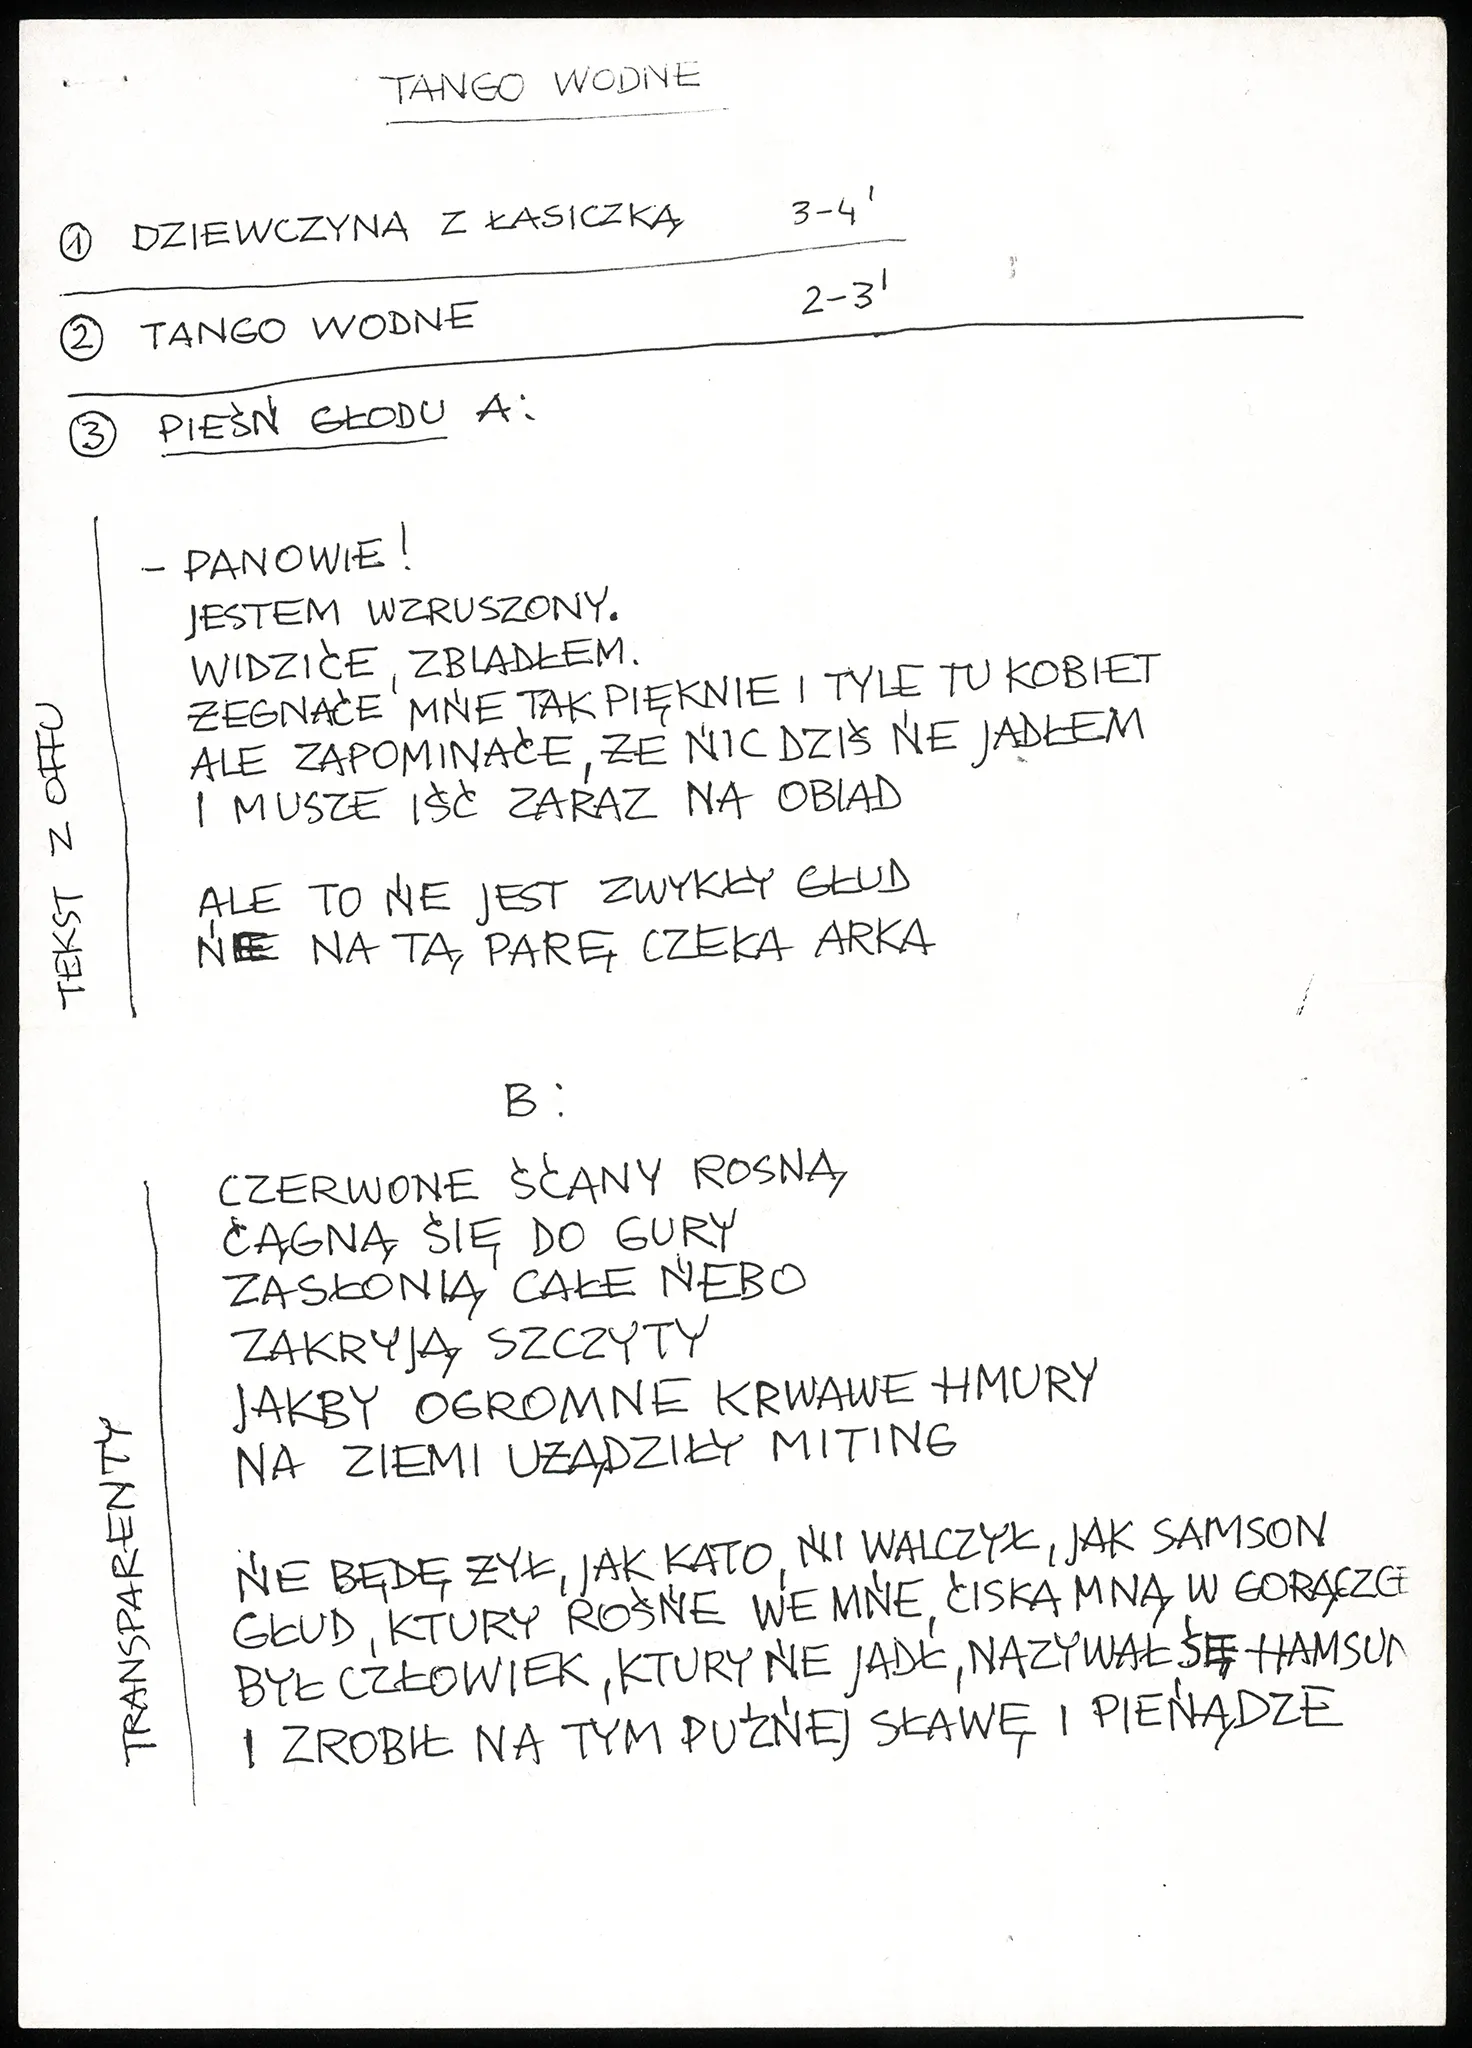 TANGO WODNE
① DZIEWCZYNA Z ŁASICZKĄ 3-4'
② TANGO WODNE 2-3'
③ PIEŚŃ GŁODU A:
TEKST Z OFFU
- PANOWIE!
JESTEM WZRUSZONY.
WIDZIĆE, ZBLADŁEM.
ŻEGNAĆE MŃE TAK PIĘKNIE I TYLE TU KOBIET
ALE ZAPOMINAĆE, ŻE ŃIC DZIŚ ŃE JADŁEM
I MUSZE IŚĆ ZARAZ NA OBIAD
ALE TO ŃE JEST ZWYKŁY GŁUD
ŃE NA TĄ PARĘ CZEKA ARKA
B:
TRANSPARENTY
CZERWONE ŚĆANY ROSNĄ
ĆĄGNĄ ŚIĘ DO GURY
ZASŁONIĄ CAŁE ŃEBO
ZAKRYJĄ SZCZYTY
JAKBY OGROMNE KRWAWE HMURY
NA ZIEMI UŻĄDZIŁY MITING
ŃE BĘDĘ ŻYŁ, JAK KATO, ŃI WALCZYŁ, JAK SAMSON
GŁUD, KTURY ROŚŃE WE MŃE, ĆISKA MNĄ W GORĄCZCE
BYŁ CZŁOWIEK, KTURY ŃE JADŁ, NAZYWAŁ ŚĘ HAMSUN
I ZROBIŁ NA TYM PUŹŃEJ SŁAWĘ I PIEŃĄDZE